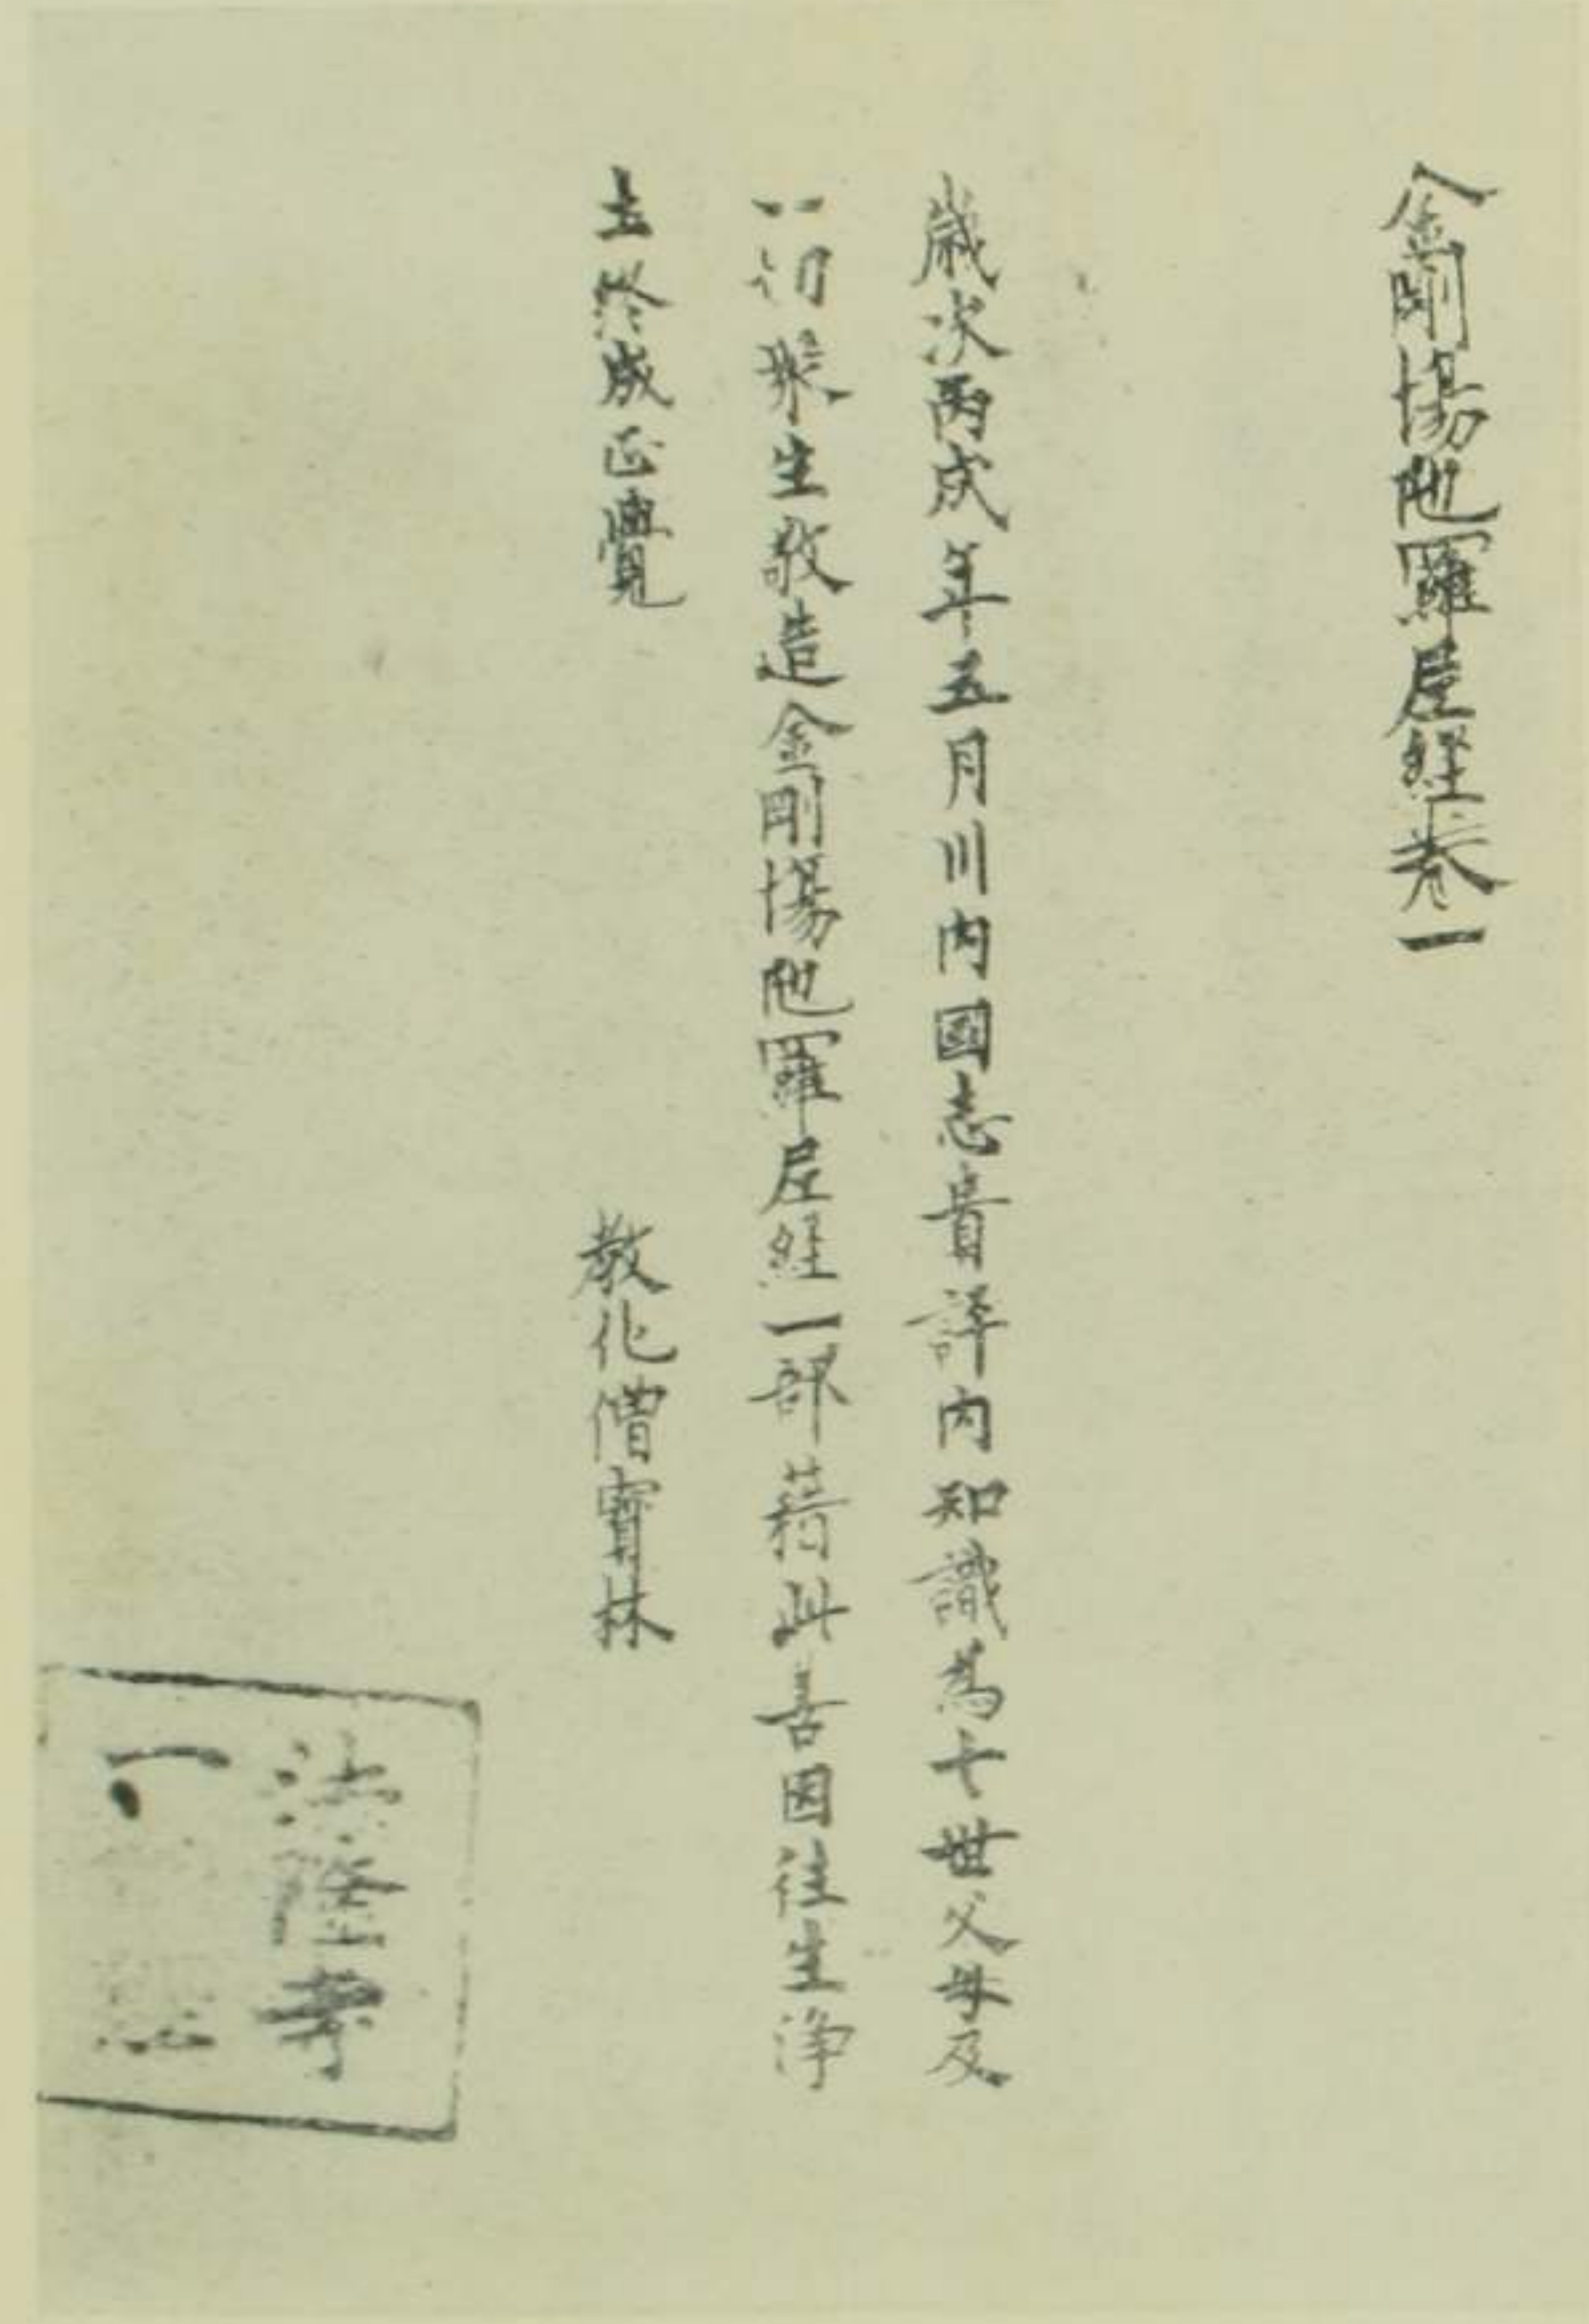 金剛場陁羅尼経巻一
歳次丙戌年五月川内國志貴評内知識為七世父母及
一切衆生敬造金剛場陁羅尼経一部藉此善因往生浄
土終成正覺
教化僧寳林
法隆寺
一